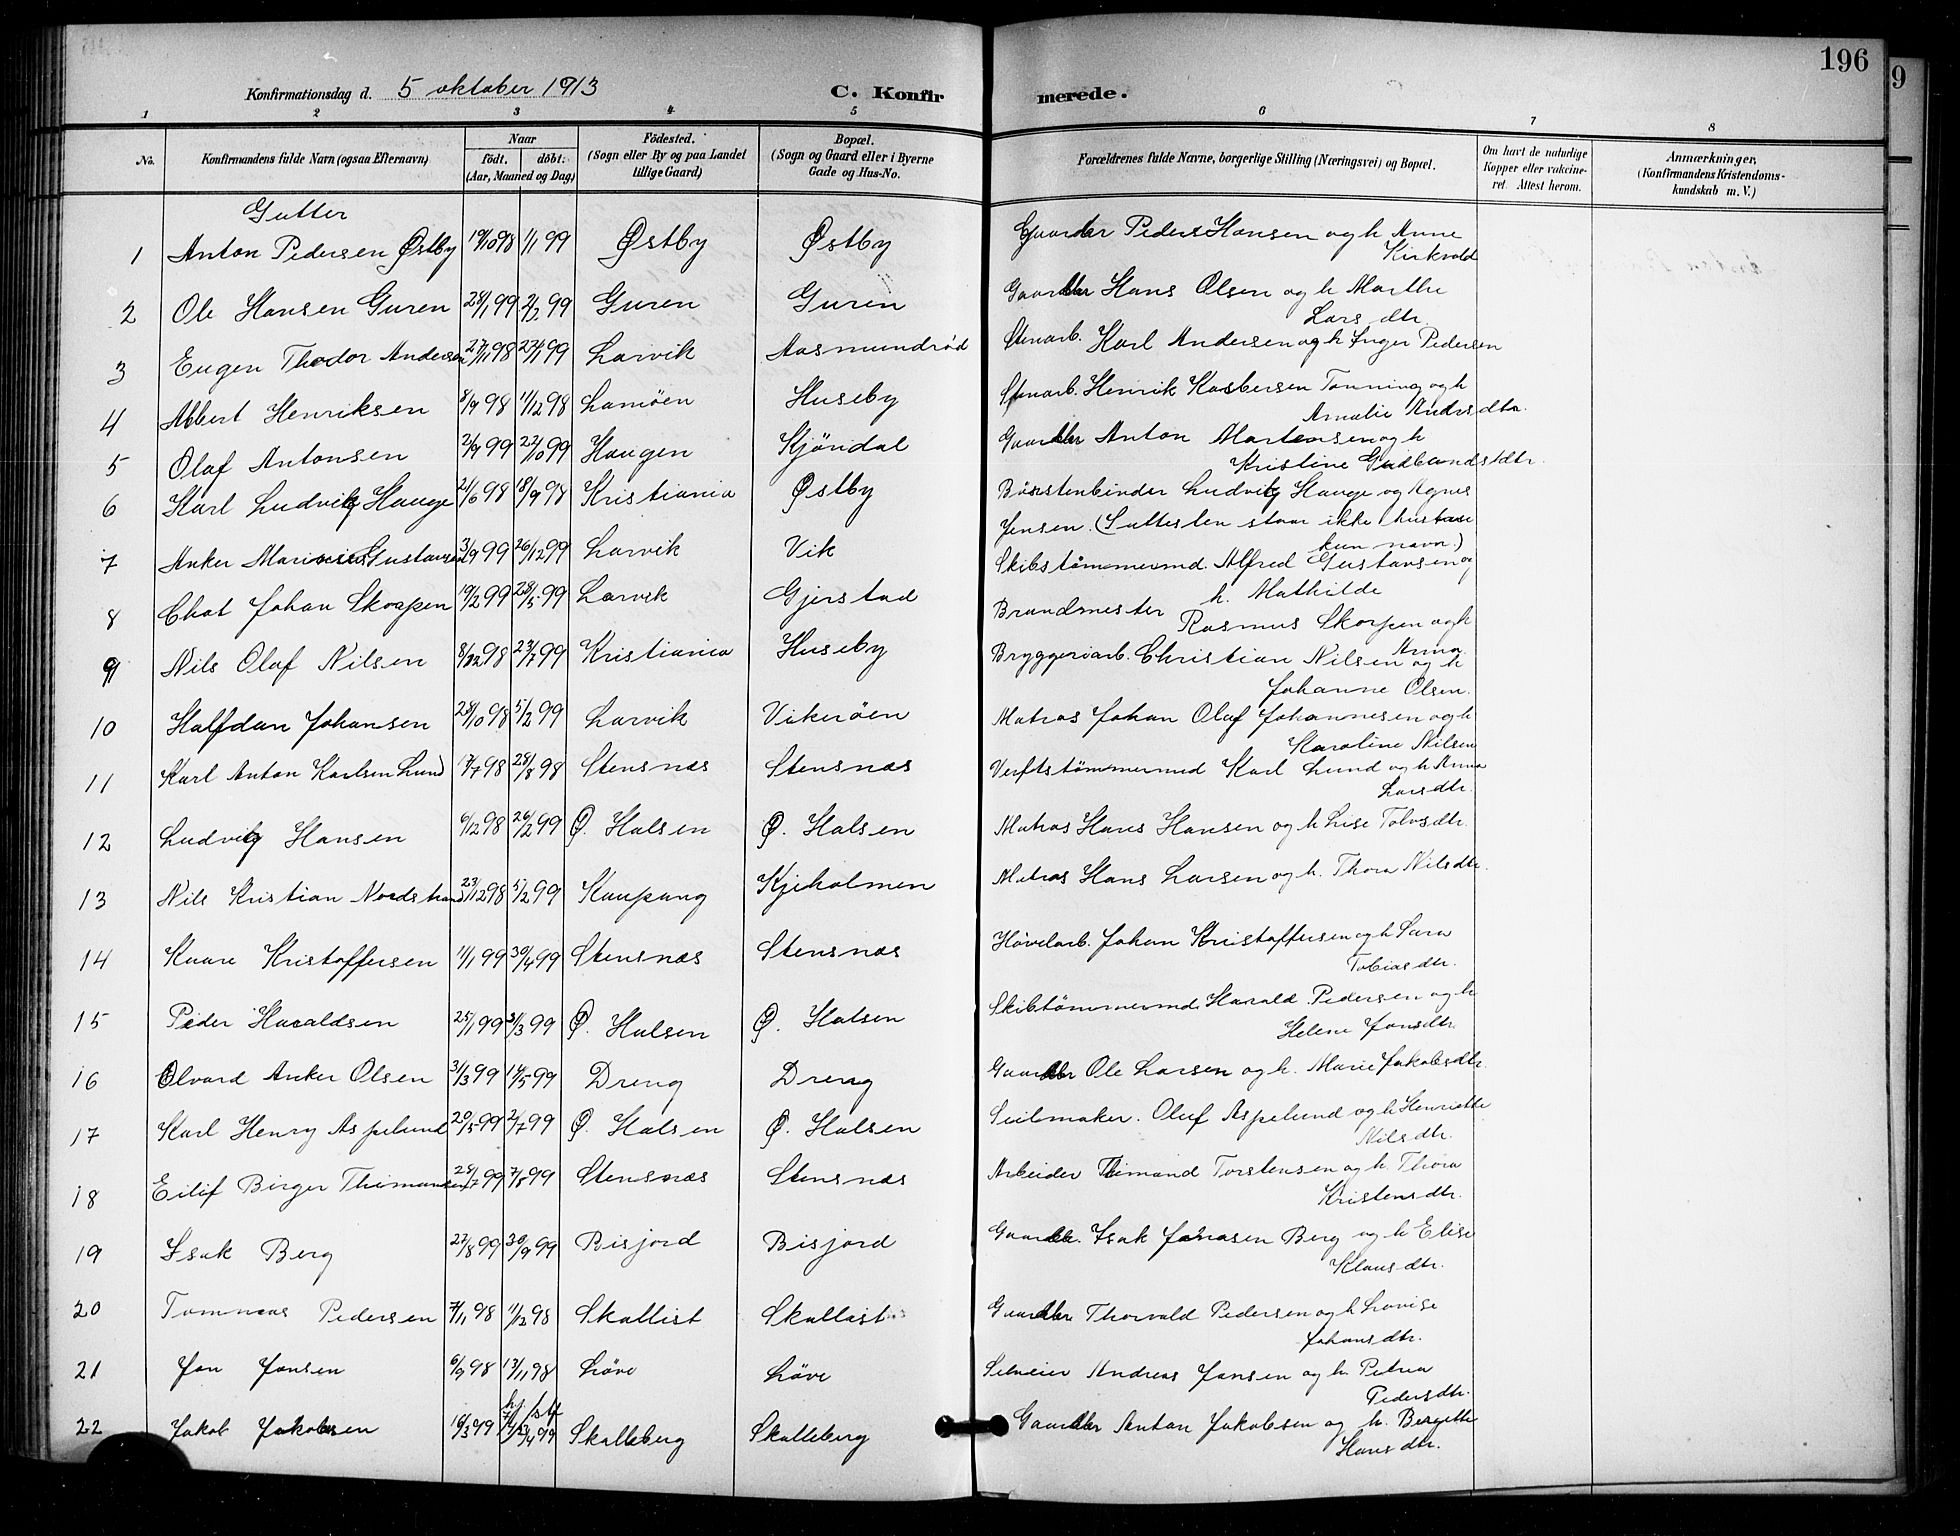 196
9
Konfirmationsdag d. 5 oktober 1913
C. Konfirmerede.
1 2 3 4 5 6 7 8
No.
Konfirmandens fulde Navn (ogsaa Efternavn)
Naar
födt. döbt.
(Aar, Maaned og Dag)
Födested.
(Sogn eller By og paa Landet
tillige Gaard)
Bopæl.
(Sogn og Gaard eller i Byerne
Gade og Hus-No.
Forældrenes fulde Navne, borgerlige Stilling (Næringsvei) og Bopæl.
Om havt de naturlige
Kopper eller vakcine-
ret. Attest herom.
Anmærkninger,
(Konfirmandens Kristendoms-
kundskab m. V.)
Gutter
1 Anton Pedersen Østby 19/10 98 1/1 99 Østby Østby Gaardbr Peder Hansen og h Anne
Kirkvold
2 Ole Hansen Guren 28/1 99 2/2 99 Guren Guren Gaardbr Hans Olsen og h Marthe
Lars dtr.
3 Eugen Thodor Andersen 27/11 98 22/1 99 Larvik Aasmundrød Stenarb. Karl Andersen og h Inger Pedersen
4 Albert Henriksen 8/9 98 11/12 98 Lamøen Huseby Stenarb. Henrik Kasbersen Tonning og h
Amalie Andrsdtr.
5 Olaf Antonsen 2/9 99 22/10 99 Haugen Kjöndal Gaardbr Anton Martensen og h
Kristine Gudbrandsdtr.
6 Karl Ludvig Hauge 21/6 98 18/9 98 Kristiania Østby Börstenbinder Ludvig Hauge og Agnes
Jensen. (I attesten staar ikke hustru
kun navn.)
7 Anker Marinius Gustavsen 3/9 99 26/12 99 Larvik Vik Skibstømmermd. Alfred Gustavsen og
h. Mathilde
8 Chat Johan Skorpen 19/2 99 28/5 99 Larvik Gjerstad Brandmester Rasmus Skorpen og h
Anna
9 Nils Olaf Nilsen 8/12 98 23/7 99 Kristiania Huseby Bryggeriarb. Christian Nilsen og h
Johanne Olsen.
10 Halfdan Johansen 28/10 98 5/2 99 Larvik Vikerøen Matros Johan Olaf Johannesen og h
Karoline Nilsen
11 Karl Anton Karlsen Lund 7/7 98 28/8 98 Stensnæs Stensnæs Verftstömmermd Karl Lund og h Anna
Larsdtr.
12 Ludvig Hansen 6/12 98 26/2 99 Ø. Halsen Ø. Halsen Matros Hans Hansen og h Lise Tolvsdtr.
13 Nils Kristian Nordstrand 23/12 98 5/2 99 Kaupang Kjeholmen Matros Hans Larsen og h. Thora Nilsdtr.
14 Kaare Kristoffersen 11/1 99 30/4 99 Stensnæs Stensnæs Hövelarb. Johan Kristoffersen og h Sara
Tobiasdtr.
15 Peder Haraldsen 25/1 99 31/3 99 Ø. Halsen Ø. Halsen Skibtömmermd. Harald Pedersen og h
Helene Jonsdtr.
16 Olvard Anker Olsen 31/3 99 14/5 99 Dreng Dreng Gaardbr Ole Larsen og h. Marie Jakobsdtr.
17 Karl Henry Aspelund 20/5 99 2/7 99 Ø. Halsen Ø. Halsen Seilmaker. Oluf Aspelund og h Henriette
Nilsdtr.
18 Eilif Birger Thimansen 28/7 99 7/8 99 Stensnæs Stensnæs Arbeider Timand Torstensen og h. Thora
Kristensdtr.
19 Isak Berg 27/8 99 30/9 99 Bisjord Bisjord Gaardbr. Isak Johnsen Berg og h Elise
Klausdtr.
20 Tommas Pedersen 7/1 98 11/2 98 Skallist Skallist Gaardbr Thorvald Pedersen og h Lovise
Johansdtr.
21 Jon Jonsen 6/9 98 13/11 98 Løve Løve Selveier Andreas Jonsen og h. Petrea
Pedersdtr.
22 Jakob Jakobsen 16/3 99 hj. /4 99 Skalleberg Skalleberg Gaardbr Anton Jakobsen og h. Bergitte
Hansdtr.